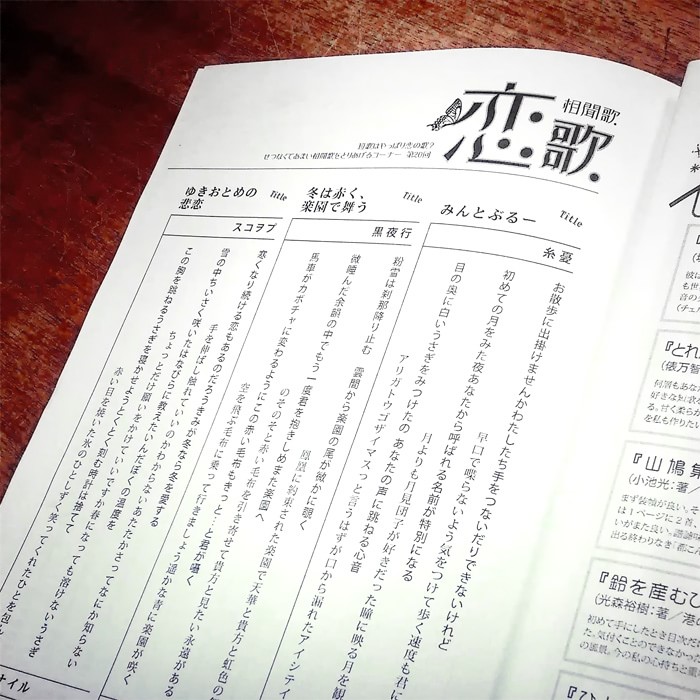 恋歌
相聞歌
短歌はやっぱり恋の歌?
せつなくてあまい相聞歌をとりあげるコーナー 第20回
Title
みんとぶるー
糸憂
お散歩に出掛けませんかわたしたち手をつないだりできないけれど
早口で喋らないよう気をつけて歩く速度も君に
初めての月をみた夜あなたから呼ばれる名前が特別になる
月よりも月見団子が好きだった瞳に映る月を
目の奥に白いうさぎをみつけたの あなたの声に跳ねる心音
アリガトウゴザイマスっと言うはずが口から漏れたアイシテイ
Title
冬は赤く、
楽園で舞う
黒夜行
粉雪は刹那降り止む 雲間から楽園の尾が微かに覗く
鳳凰に約束された楽園で天華と貴方と虹色の
微睡んだ余韻の中でもう一度君を抱きしめまた楽園へ
のそのそと赤い毛布を引き寄せて貴方と見たい永遠がある
馬車がカボチャに変わるようにこの赤い毛布もきっと…と君が囁く
空を飛ぶ毛布に乗って行きましょう遥かな青に楽園が咲く
Title
ゆきおとめの
悲恋
スコヲプ
寒くなり続ける恋もあるのだろうきみが冬なら冬を愛する
手を伸ばし触れていいのかわからないあたたかさってなにか知らない
雪の中ちいさく咲いたはなびらに教えたいんだぼくの温度を
ちょっとだけ願いをかけていいですか春になっても溶けないうさぎ
この胸を跳ねるうさぎを寝かせようとくとく刻む時計は捨てて
赤い目を焼いた氷のひとしずく笑ってくれたひとを包
ナイル
『とれ
(俵万智
『山鳩集
(小池光:著
『鈴を産むひ
(光森裕樹:著/港の